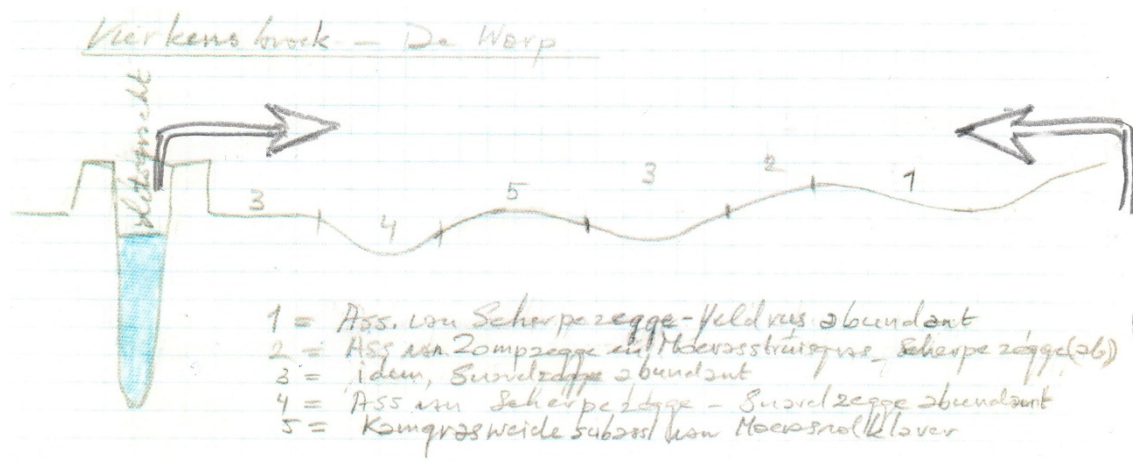 De Worp
3 4 5 3 2 1
1 = Ass. van Scherpe zegge - Veldrus abundant
2 = Ass van Zompzegge en Moerasstruisgras - Scherpe zegge (ab)
3 = idem, Snavelzegge abundant
4 = Ass van Scherpe zegge - Snavelzegge abundant
5 = Kamgrasweide subass van Moerasrolklaver